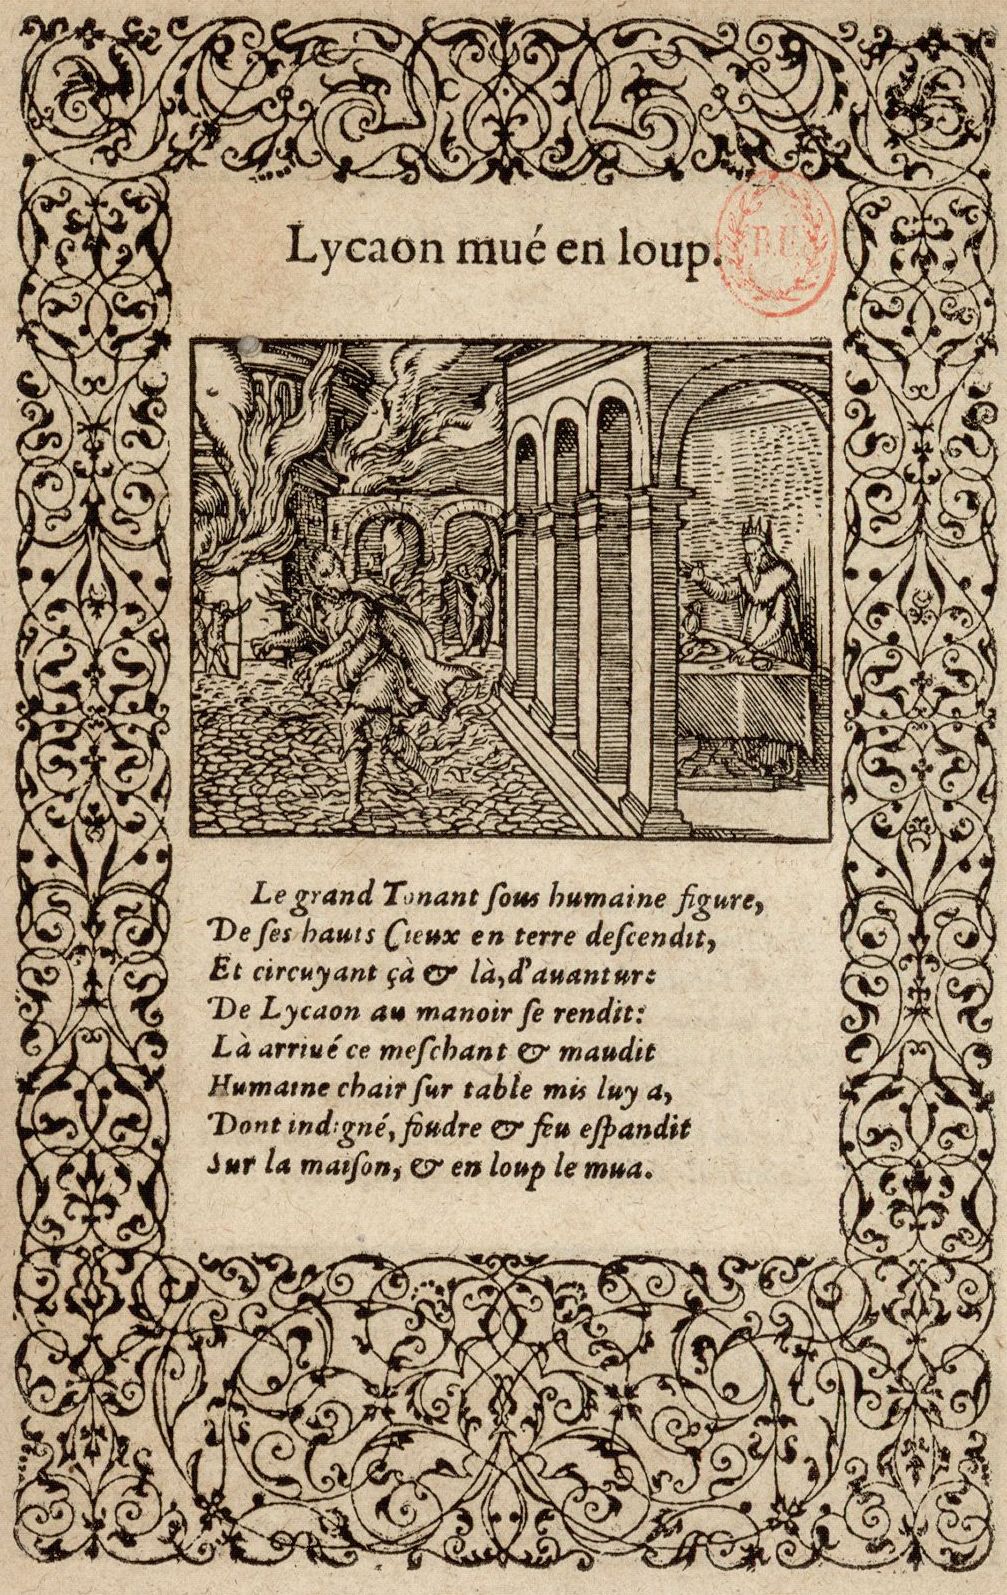 Lycaon mué en loup.
Le grand Tonant ſous humaine figure,
De ſes hauts Cieux en terre deſcendit,
Et circuyant çà & là, d'auanture
De Lycaon au manoir ſe rendit:
Là arriué ce meſchant & maudit
Humaine chair ſur table mis luy a,
Dont indigné, foudre & feu eſpandit
Sur la maiſon, & en loup le mua.